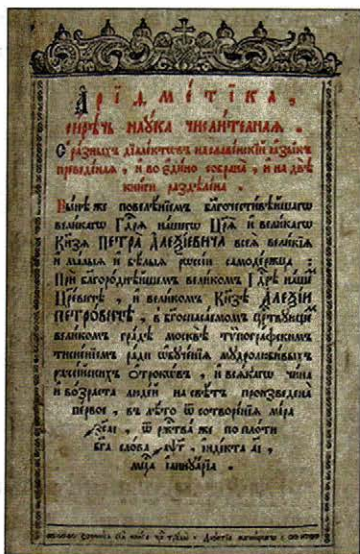 А҆ріѳме́тіка,
сирѣ́чь наꙋ́ка числи́телнаѧ.
С̾ ра́зныхъ дїале́ктѡвъ на славе́нскїй ѧ҆зы́къ
преведе́наѧ, и҆ во є҆ди́но собрана̀, и҆ на двѣ̀
кни́ги раздѣле́на.
Ны́нѣ же повелѣ́нїемъ бл҃гочести́вѣйшагѡ
вели́кагѡ Гд҇рѧ на́шегѡ Цр҃ѧ̀ и҆ вели́кагѡ
Кн҃зѧ ПЕТРА̀ А҆ЛЕѮІ́ЕВИЧА всеѧ̀ вели́кїѧ
и҆ ма́лыѧ и҆ бѣ́лыѧ рѡссі́и самоде́ржца:
При бл҃горо́днѣйшемъ вели́комъ Гд҇рѣ на́шемъ
Цр҃е́вичѣ, и҆ вели́комъ Кн҃зѣ А҆ЛЕѮІ́И
ПЕТРО́ВИЧѢ, в̾ бг҃оспаса́емомъ ца́рствꙋющемъ
вели́комъ гра́дѣ москвѣ̀ тѷпогра́фскимъ
тисне́нїемъ ра́ди ѡ҆бꙋче́нїѧ мꙋдролюби́выхъ
рѡссі́йскихъ О҆́трокѡвъ, и҆ всѧ́кагѡ чи́на
и҆ во́зраста люде́й на свѣ́тъ произведена̀
пе́рвое, въ лѣ́то ѿ сотворе́нїѧ мі́ра
҂зс҃аі, ѿ рж҇тва́ же по пло́ти
бг҃а сло́ва ҂аѱ҃г, і҆нді́кта а҃і,
мц҇а і҆аннꙋа́рїа.